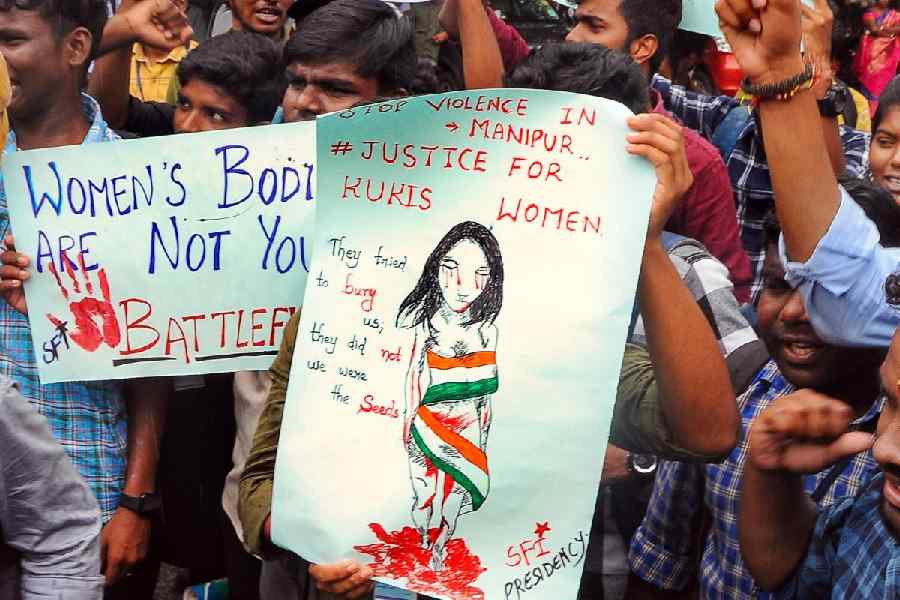 WOMEN'S BODI
ARE NOT YOU
BATTLEF
SFI
STOP VIOLENCE IN
→ MANIPUR..
# JUSTICE FOR
KUKIS WOMEN.
They tried
to bury
us,
they did not
we were
the Seeds.
SFI
PRESIDENCY.